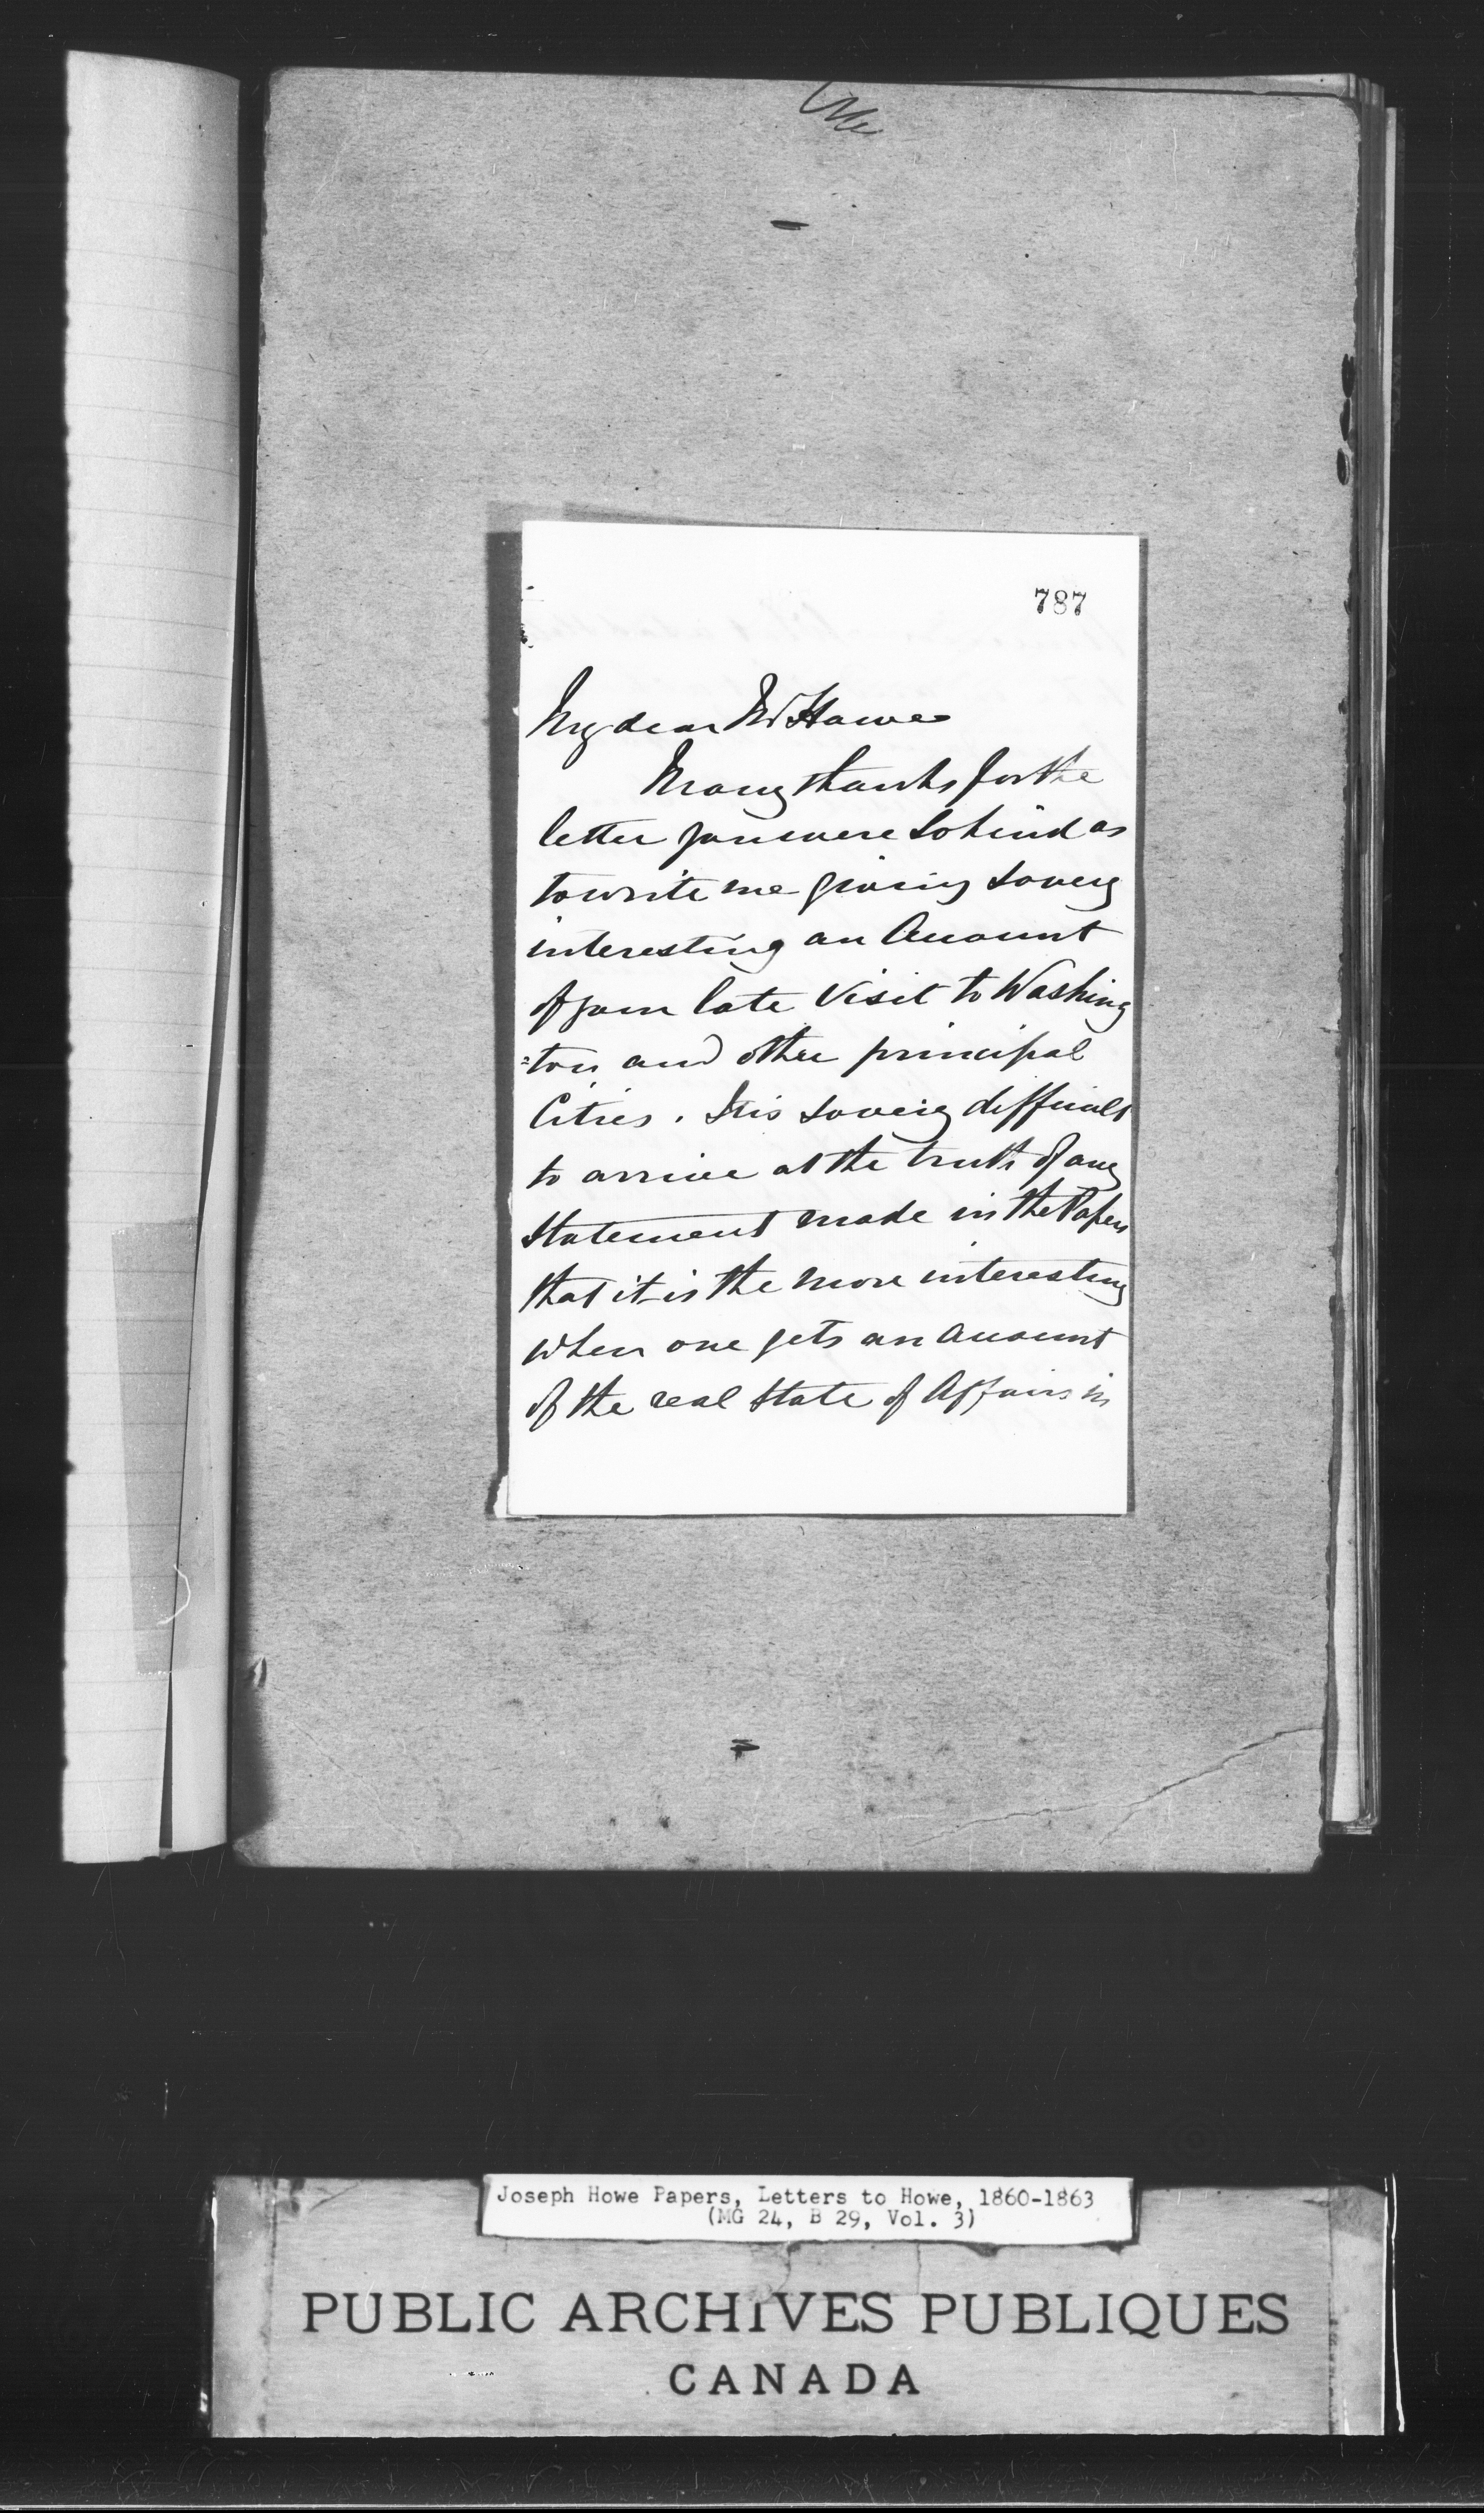 787
My dear Mr Howe
Many thanks for the
letter you were so kind as
to write me giving so very
interesting an Account
of your late Visit to Washing
=ton and other principal
Cities. It is so very difficult
to arrive at the truth of any
Statement made in the Papers
that it is the more interesting
when one gets an Account
of the real State of Affairs in
Joseph Howe Papers, Letters to Howe, 1860-1863
(MG 24, B 29, Vol. 3)
PUBLIC ARCHIVES PUBLIQUES
CANADA